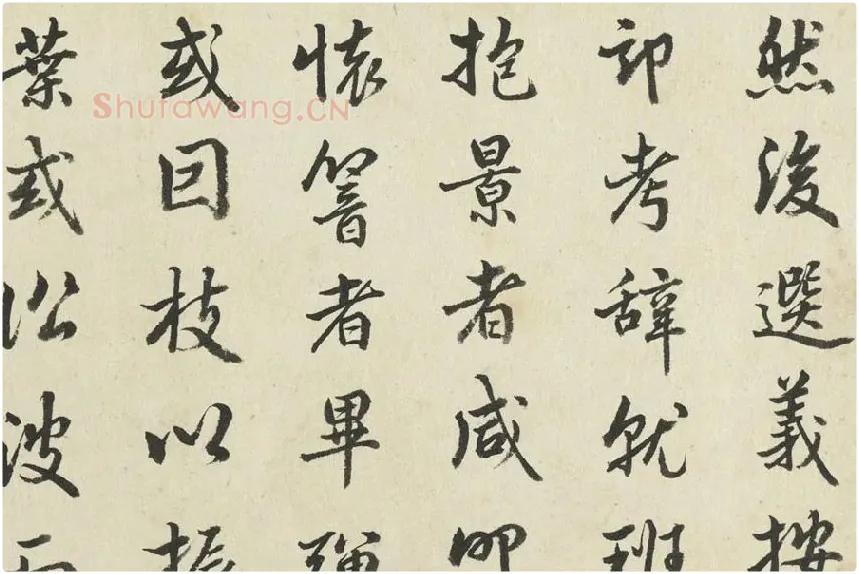 然後選義按
部考辭就班
抱景者咸叩
懷響者畢彈
或因枝以振
葉或沿波而
Shufawang.CN